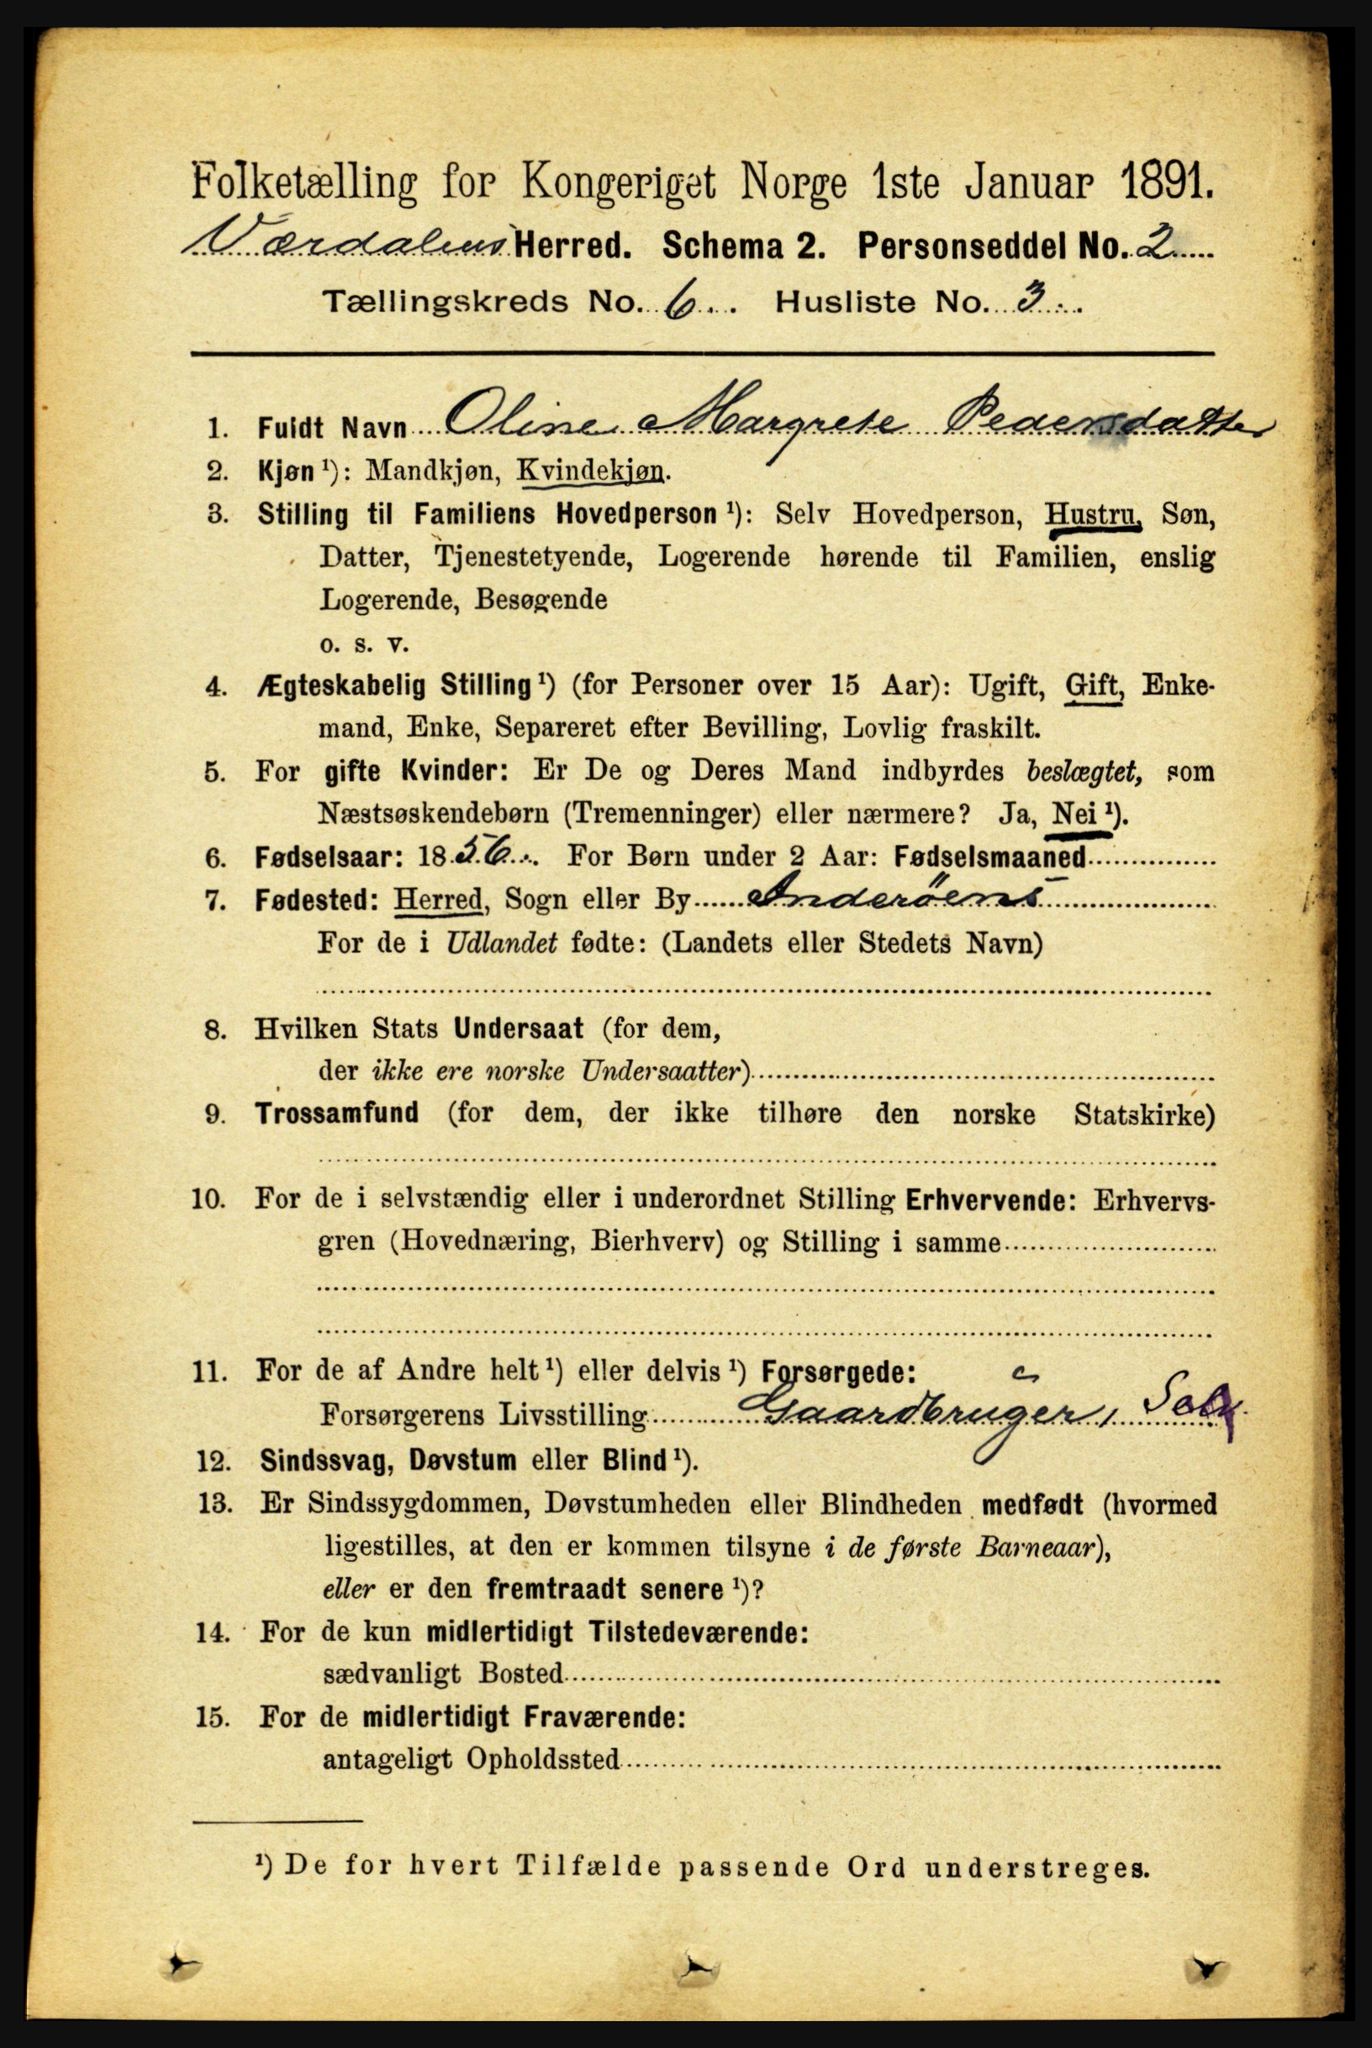 Folketælling for Kongeriget Norge 1ste Januar 1891.
Værdalens Herred. Schema 2. Personseddel No. 2
Tællingskreds No. 6. Husliste No. 3.
1. Fuldt Navn Oline Margrete Pedersdatter
2. Kjøn ¹): Mandkjøn, Kvindekjøn.
3. Stilling til Familiens Hovedperson ¹): Selv Hovedperson, Hustru, Søn,
Datter, Tjenestetyende, Logerende hørende til Familien, enslig
Logerende, Besøgende
o. s. v.
4. Ægteskabelig Stilling ¹) (for Personer over 15 Aar): Ugift, Gift, Enke-
mand, Enke, Separeret efter Bevilling, Lovlig fraskilt.
5. For gifte Kvinder: Er De og Deres Mand indbyrdes beslægtet, som
Næstsøskendebørn (Tremenninger) eller nærmere? Ja, Nei ¹).
6. Fødselsaar: 1856. For Børn under 2 Aar: Fødselsmaaned
7. Fødested: Herred, Sogn eller By Inderøens
For de i Udlandet fødte: (Landets eller Stedets Navn)
8. Hvilken Stats Undersaat (for dem,
der ikke ere norske Undersaatter)
9. Trossamfund (for dem, der ikke tilhøre den norske Statskirke)
10. For de i selvstændig eller i underordnet Stilling Erhvervende: Erhvervs-
gren (Hovednæring, Bierhverv) og Stilling i samme
11. For de af Andre helt ¹) eller delvis ¹) Forsørgede:
Forsørgerens Livsstilling Gaardbruger, Selv
12. Sindssvag, Døvstum eller Blind ¹).
13. Er Sindssygdommen, Døvstumheden eller Blindheden medfødt (hvormed
ligestilles, at den er kommen tilsyne i de første Barneaar),
eller er den fremtraadt senere ¹)?
14. For de kun midlertidigt Tilstedeværende:
sædvanligt Bosted
15. For de midlertidigt Fraværende:
antageligt Opholdssted
¹) De for hvert Tilfælde passende Ord understreges.